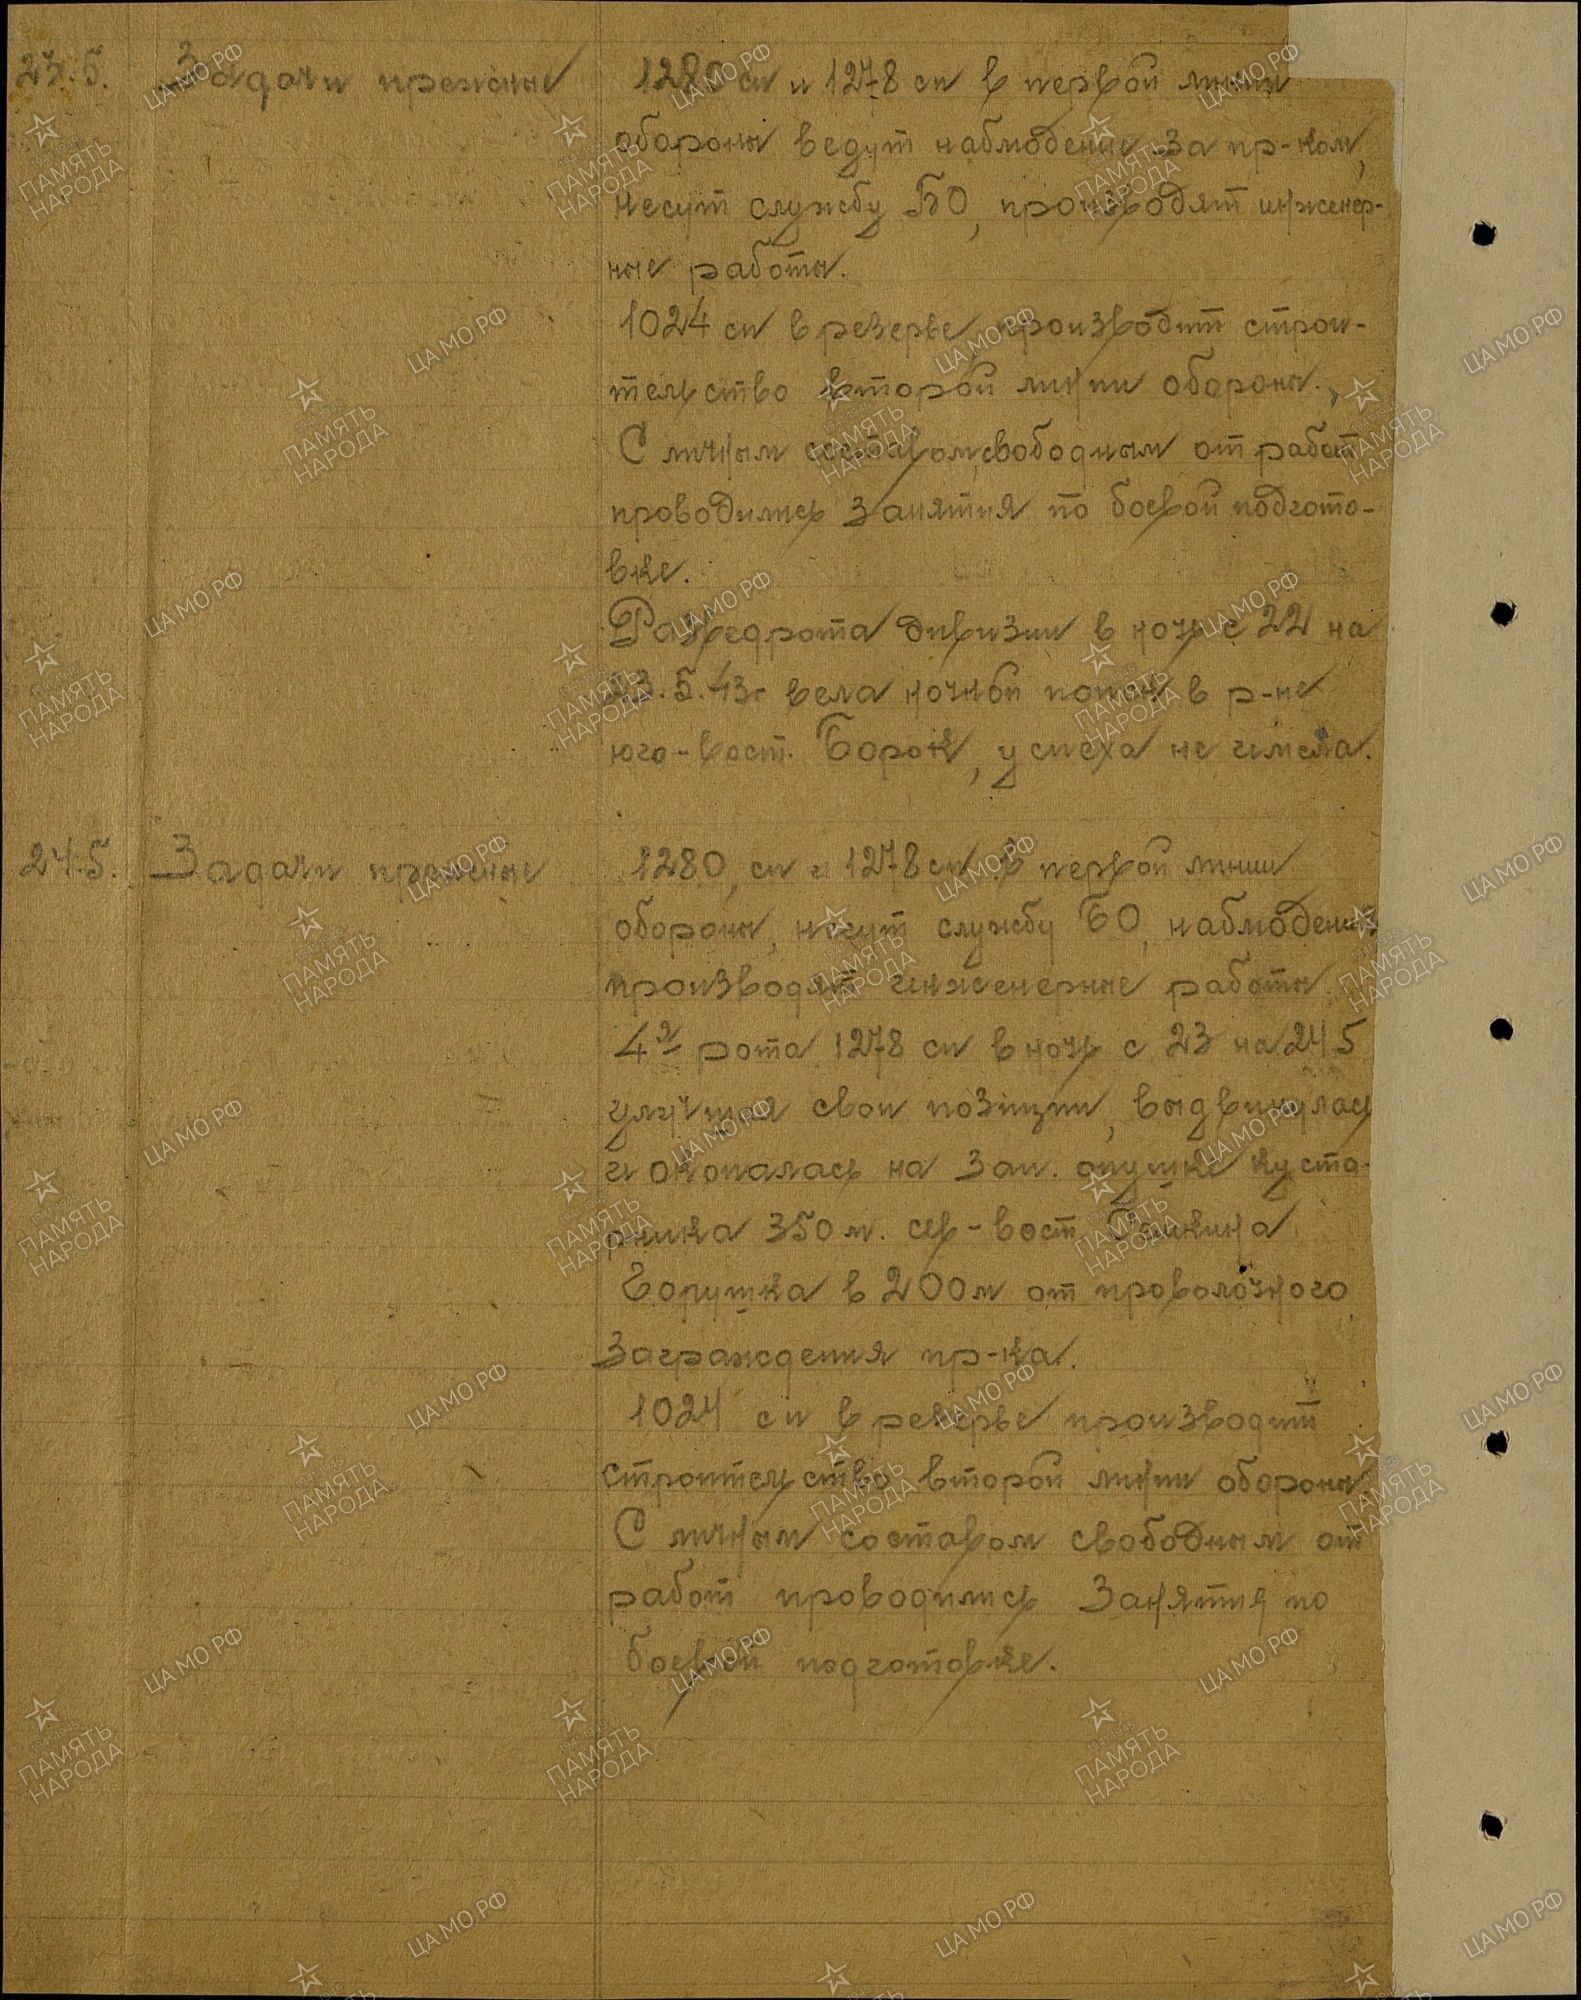 23.5. Задачи прежние 1280 сп и 1278 сп в первой линии
обороны ведут наблюдение за пр-ком,
несут службу БО, производят инженер-
ные работы.
1024 сп в резерве, производит строи-
тельство второй линии обороны.
С личным составом, свободным от работ
проводились занятия по боевой подгото-
вке.
Разведрота дивизии в ночь с 22 на
23.5.43г вела ночной поиск в р-не
юго-вост. Борок, успеха не имела.
24.5. Задачи прежние 1280, сп и 1278 сп в первой линии
обороны, несут службу БО, наблюдение
производят инженерные работы.
4я рота 1278 сп в ночь с 23 на 24.5
улучшая свои позиции, выдвинулась
и окопалась на зап. опушке куста-
рника 350 м. сев-вост.
Горушка в 200 м от проволочного
заграждения пр-ка.
1024 сп в резерве производит
строительство второй линии обороны.
С личным составом свободным от
работ проводились занятия по
боевой подготовке.
ЦА МО РФ
ПАМЯТЬ
НАРОДА